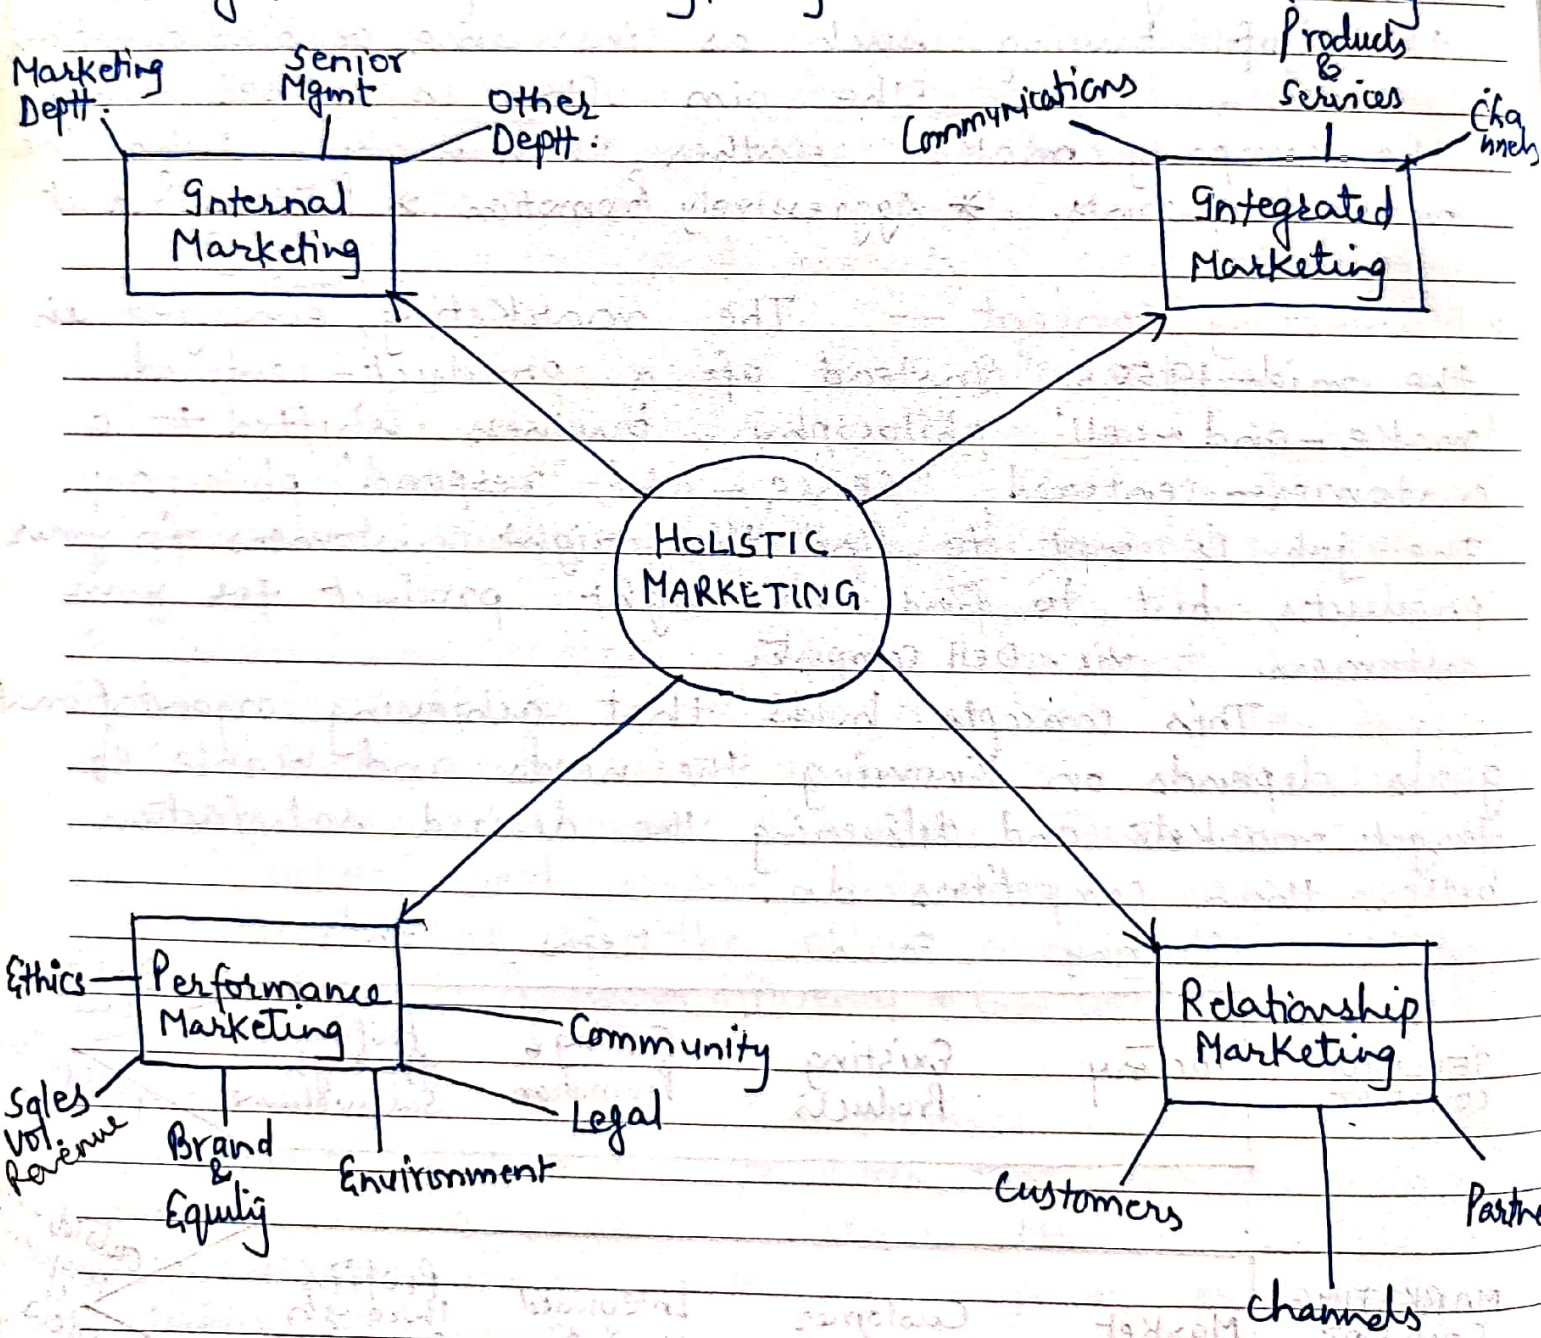 Marketing
Deptt.
Senior
Mgmt
Other
Deptt.
Internal
Marketing
Communications
Products
&
Services
Cha
nnels
Integrated
Marketing
HOLISTIC
MARKETING
Ethics
Performance
Marketing
Community
Legal
Sales
Vol.
Revenue
Brand
&
Equity
Environment
Relationship
Marketing
Customers
Channels